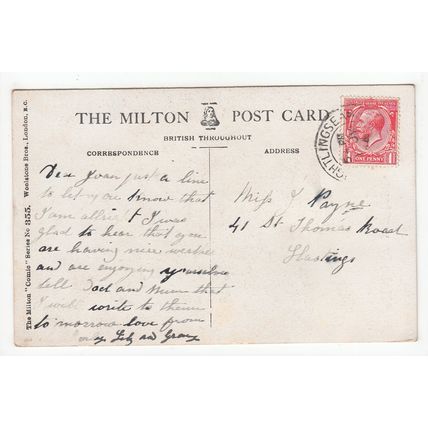 THE MILTON POST CARD
BRITISH THROUGHOUT
CORRESPONDENCE
ADDRESS
The Milton "Comic" Series No 855. Woolstone Bros., London, E.C.
Dear Joan just a line
to let you know that
I am allright I was
glad to hear that you
are having nice weather
and are enjoying yourselves
tell Dad and Mum that
I will write to them
to morrow love from
and
Miss J Payne
41 St. Thomas Road
Hastings
ONE PENNY